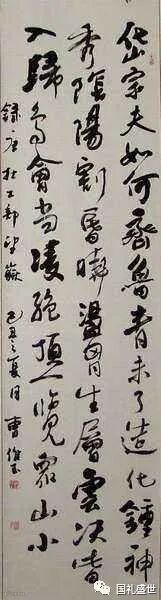 岱宗夫如何齊魯青未了造化鍾神
秀陰陽割昏曉盪胸生層雲決眥
入歸鳥會當凌絕頂一覽眾山小
錄唐杜工部望嶽 己丑之夏月 曹
国礼盛世